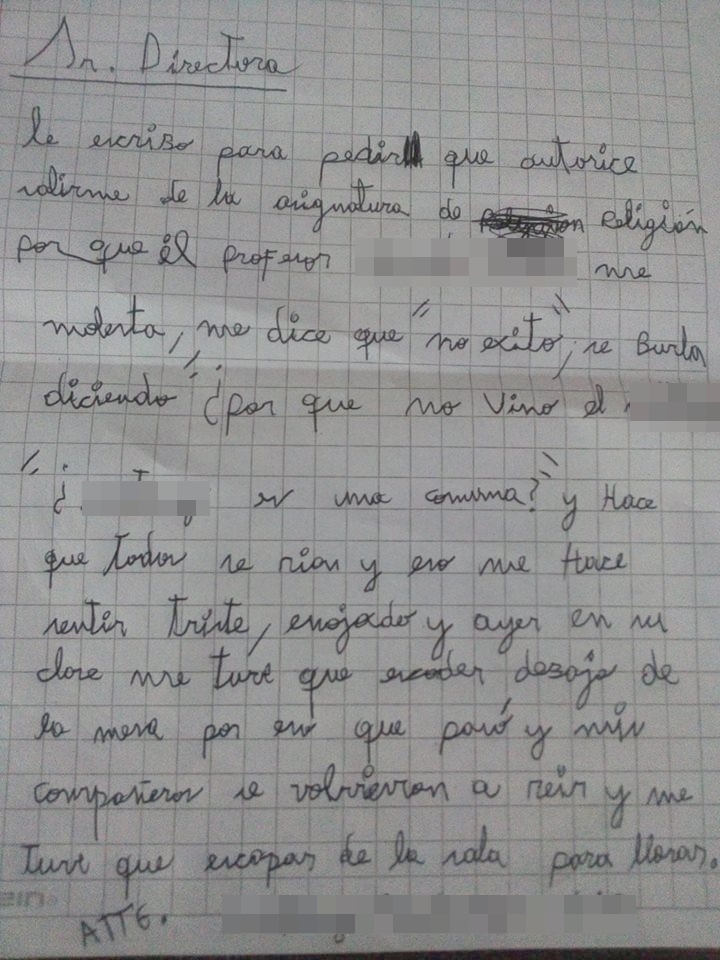 Sr. Directora
le escribo para pedir que autorice
salirme de la asignatura de religión
por que él profesor me
molesta, me dice que "no exito", se Burla
diciendo "¿por que no vino el
"¿ es una comuna?" y Hace
que todos se rian y eso me Hace
sentir triste, enojado y ayer en su
clase me tuve que escoder desajo de
la mesa por eso que pasó y mis
compañeros se volvieron a reir y me
tuve que escapar de la sala para llorar.
ATTE.